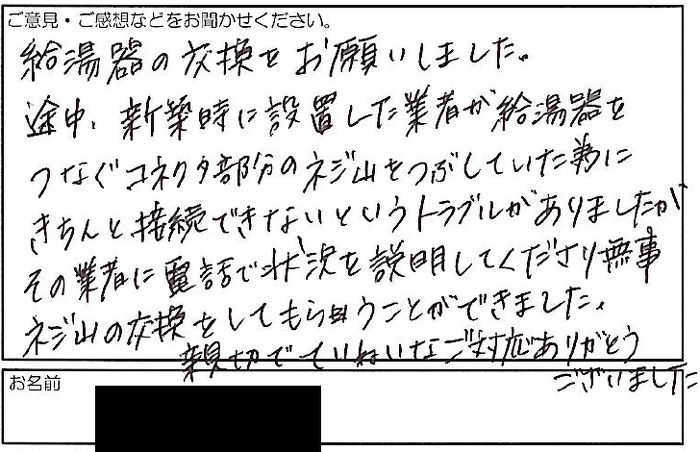 ご意見・ご感想などをお聞かせください。
給湯器の交換をお願いしました。
途中、新築時に設置した業者が給湯器を
つなぐコネクタ部分のネジ山をつぶしていた為に
きちんと接続できないというトラブルがありましたが
その業者に電話で状況を説明してくださり無事
ネジ山の交換をしてもらうことができました。
親切でていねいなご対応ありがとう
ございました
お名前